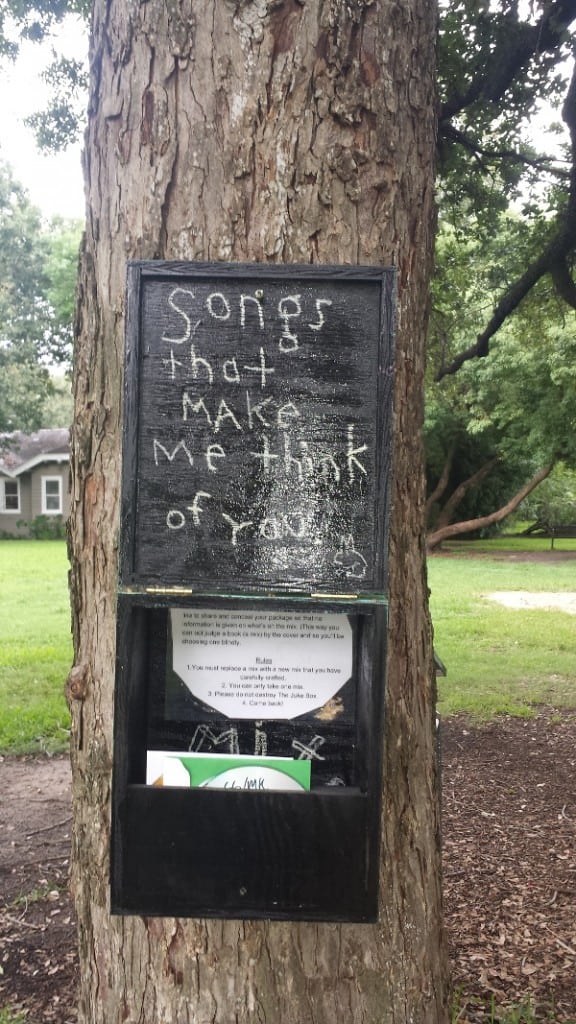 Songs
that
MAKe
me think
of you!
like to share and conceal your package so that no
information is given on what's on the mix. (This way you
can not judge a book (a mix) by the cover and so you'll be
choosing one blindly.
Rules
1. You must replace a mix with a new mix that you have
carefully crafted.
2. You can only take one mix.
3. Please do not destroy The Juke Box.
4. Come back!
MIx